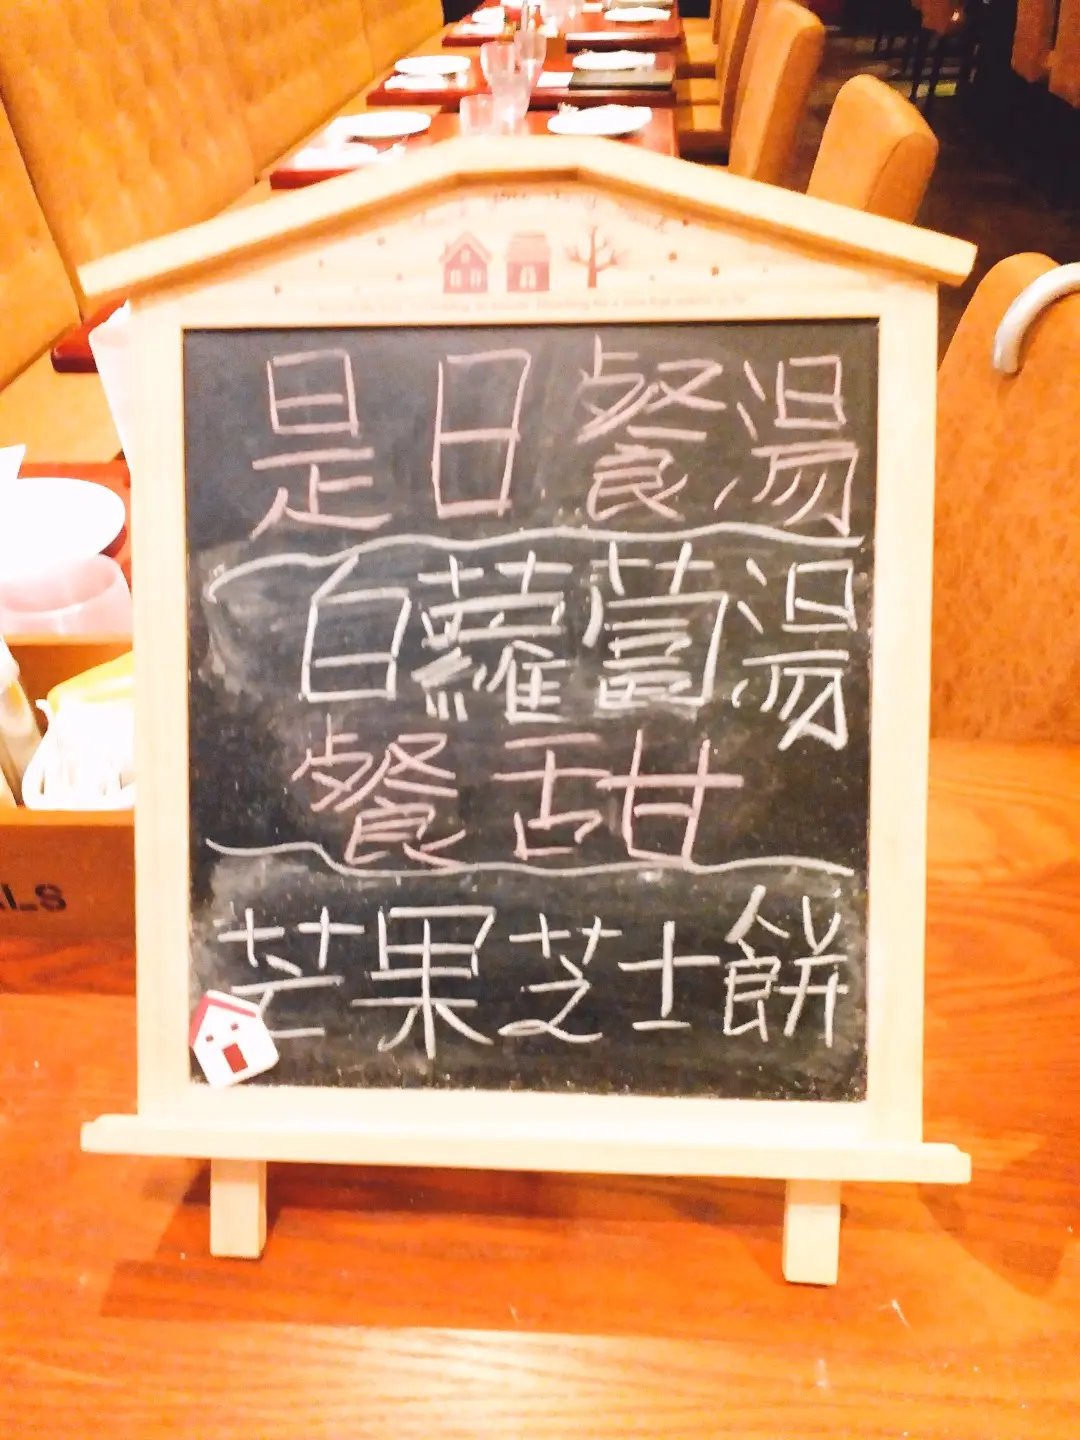 是日餐湯
白蘿蔔湯
餐甜
芒果芝士餅
ALS